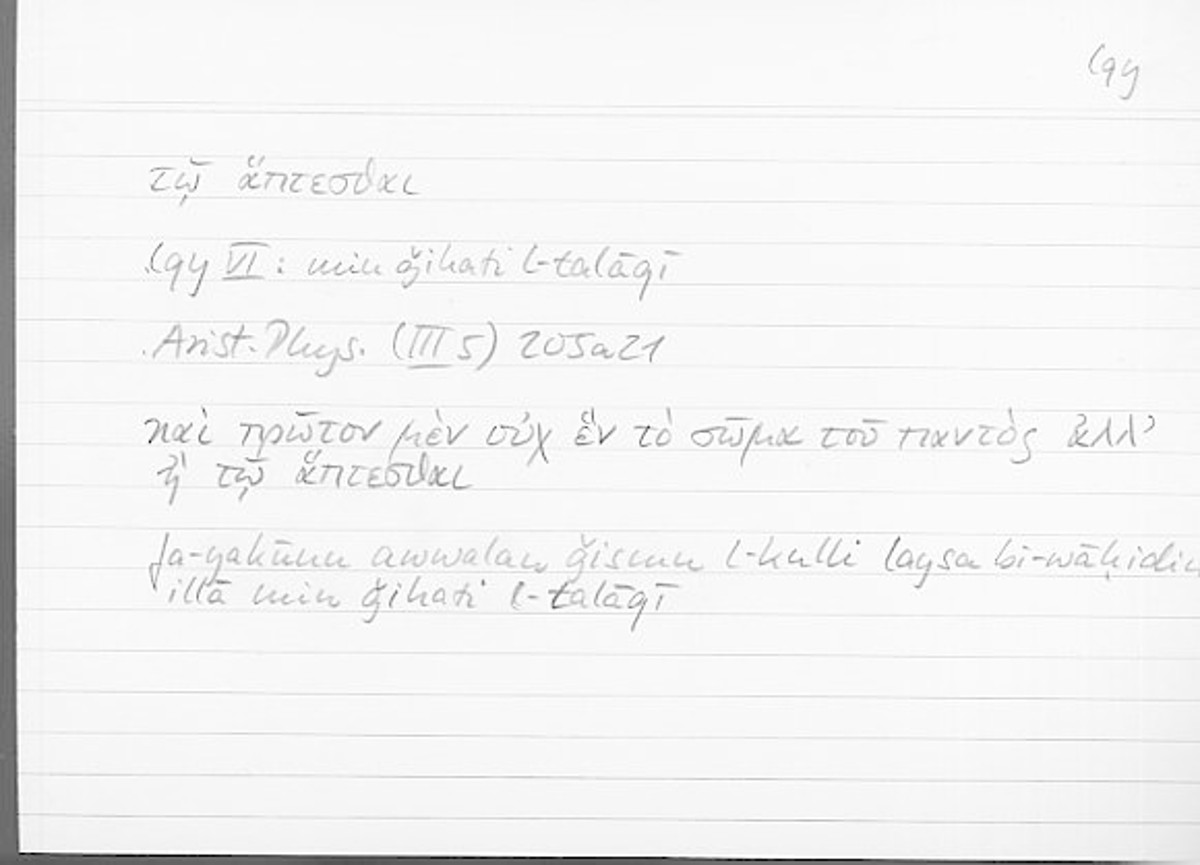 lqy
τῷ ἅπτεσθαι
lqy VI: min ǧihati l-talāqī
Arist. Phys. (III 5) 205a21
καὶ πρῶτον μὲν οὐχ ἓν τὸ σῶμα τοῦ παντὸς ἀλλ’
ἢ τῷ ἅπτεσθαι
fa-yakūnu awwalan ǧismu l-kulli laysa bi-wāḥidin
illā min ǧihati l-talāqī